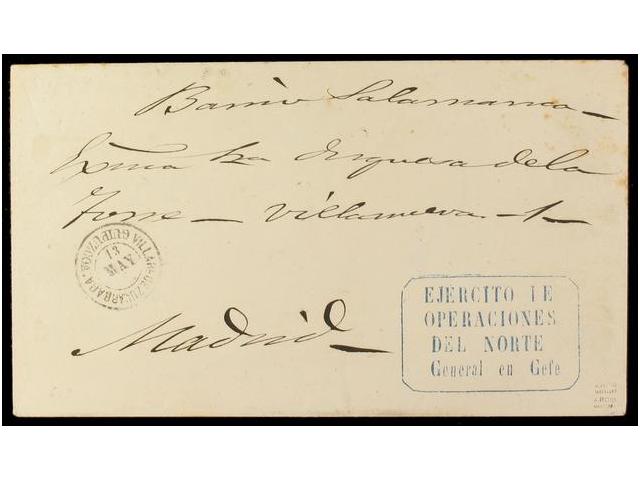 Barrio Salamanca
Exma Sra Duquesa de la
Torre - Villanueva - 1 -
Madrid
13
MAY
GUIPUZCOA
EJERCITO IE
OPERACIONES
DEL NORTE
General en Gefe